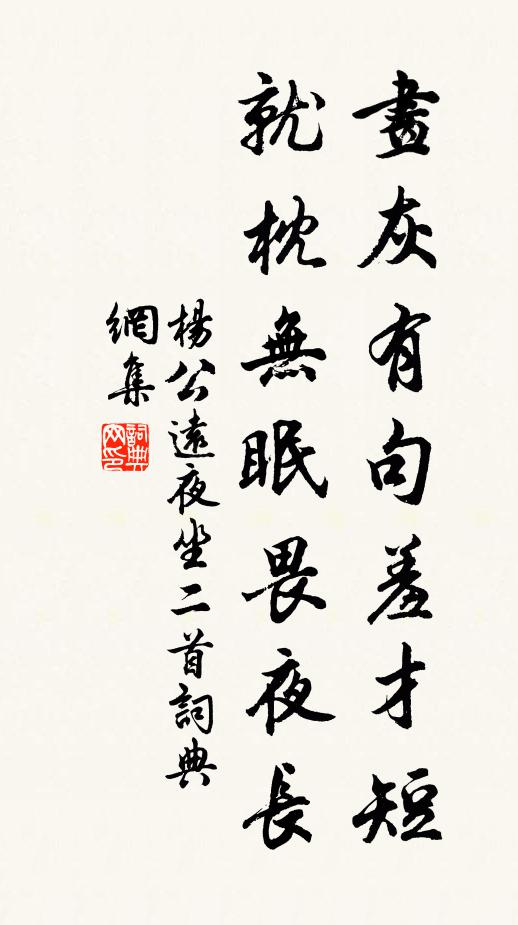 畫灰有句羞才短
就枕無眠畏夜長
楊公遠夜坐二首詞典
網集
詞典网印